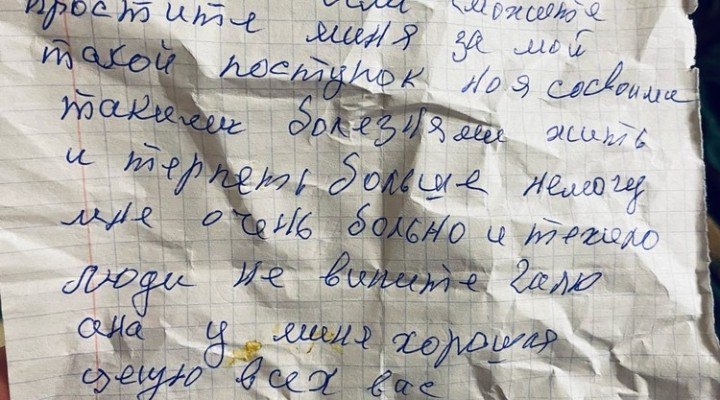 простите если сможите
миня за мой
такой поступок но я сосвоими
такими болезнями жить
и терпеть больше немогу
мне очень больно и тежело
люди не вините Галю
она у миня хорошая
целую всех вас